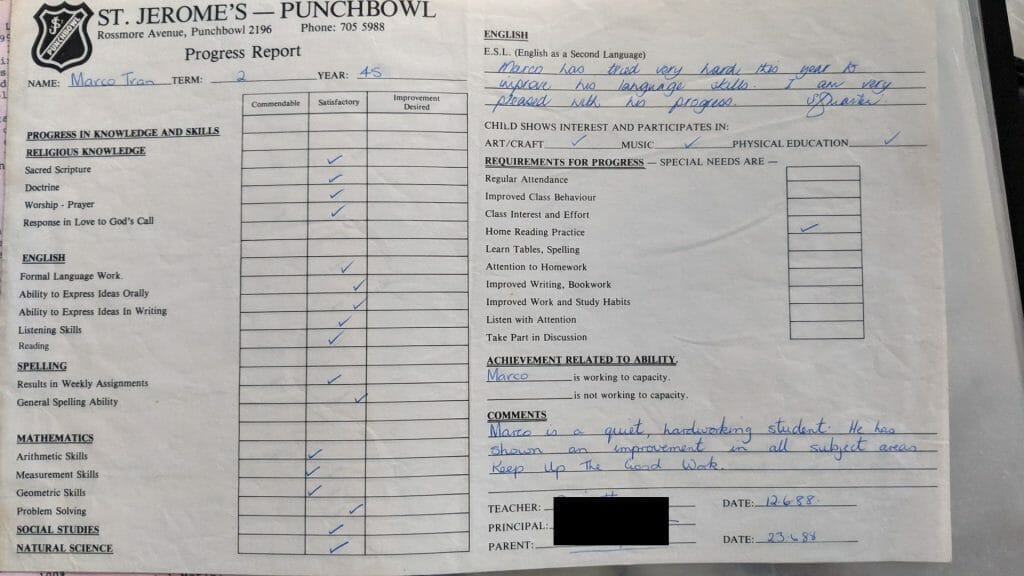 ST. JEROME'S — PUNCHBOWL
Rossmore Avenue, Punchbowl 2196 Phone: 705 5988
PUNCHBOWL
Progress Report
NAME: Marco Tran TERM: 2 YEAR: 4S
Commendable Satisfactory Improvement Desired
PROGRESS IN KNOWLEDGE AND SKILLS
RELIGIOUS KNOWLEDGE
Sacred Scripture ✓
Doctrine ✓
Worship - Prayer ✓
Response in Love to God's Call ✓
ENGLISH
Formal Language Work. ✓
Ability to Express Ideas Orally ✓
Ability to Express Ideas In Writing ✓
Listening Skills ✓
Reading ✓
SPELLING
Results in Weekly Assignments ✓
General Spelling Ability ✓
MATHEMATICS
Arithmetic Skills ✓
Measurement Skills ✓
Geometric Skills ✓
Problem Solving ✓
SOCIAL STUDIES ✓
NATURAL SCIENCE ✓
ENGLISH
E.S.L. (English as a Second Language)
Marco has tried very hard this year to
improve his language skills. I am very
pleased with his progress.
CHILD SHOWS INTEREST AND PARTICIPATES IN:
ART/CRAFT ✓ MUSIC ✓ PHYSICAL EDUCATION ✓
REQUIREMENTS FOR PROGRESS — SPECIAL NEEDS ARE —
Regular Attendance
Improved Class Behaviour
Class Interest and Effort
Home Reading Practice ✓
Learn Tables, Spelling
Attention to Homework
Improved Writing, Bookwork
Improved Work and Study Habits
Listen with Attention
Take Part in Discussion
ACHIEVEMENT RELATED TO ABILITY.
Marco is working to capacity.
is not working to capacity.
COMMENTS
Marco is a quiet, hardworking student. He has
shown an improvement in all subject areas
Keep Up The Good Work.
TEACHER: DATE: 12.6.88.
PRINCIPAL:
PARENT: DATE: 23.6.88